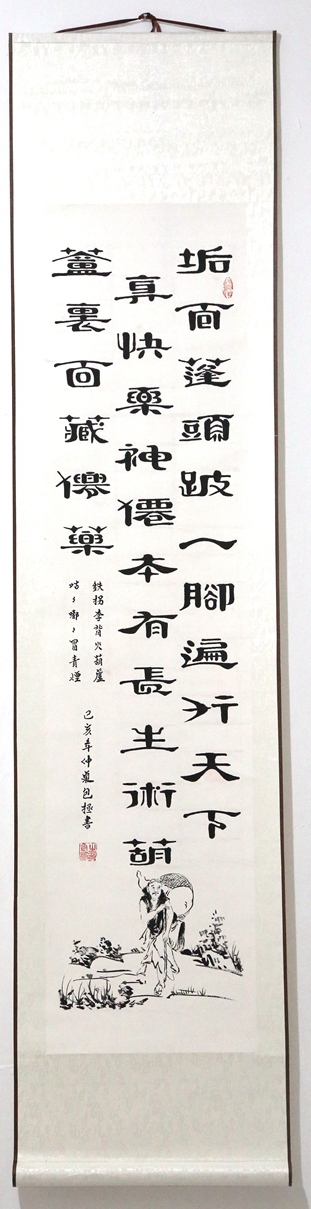 垢面蓬頭跛一腳遍行天下
真快樂神僊本有長生術葫
蘆裏面藏僊藥
鉄拐李背火葫蘆
咕々嘟々冒青煙
己亥年仲夏包極書